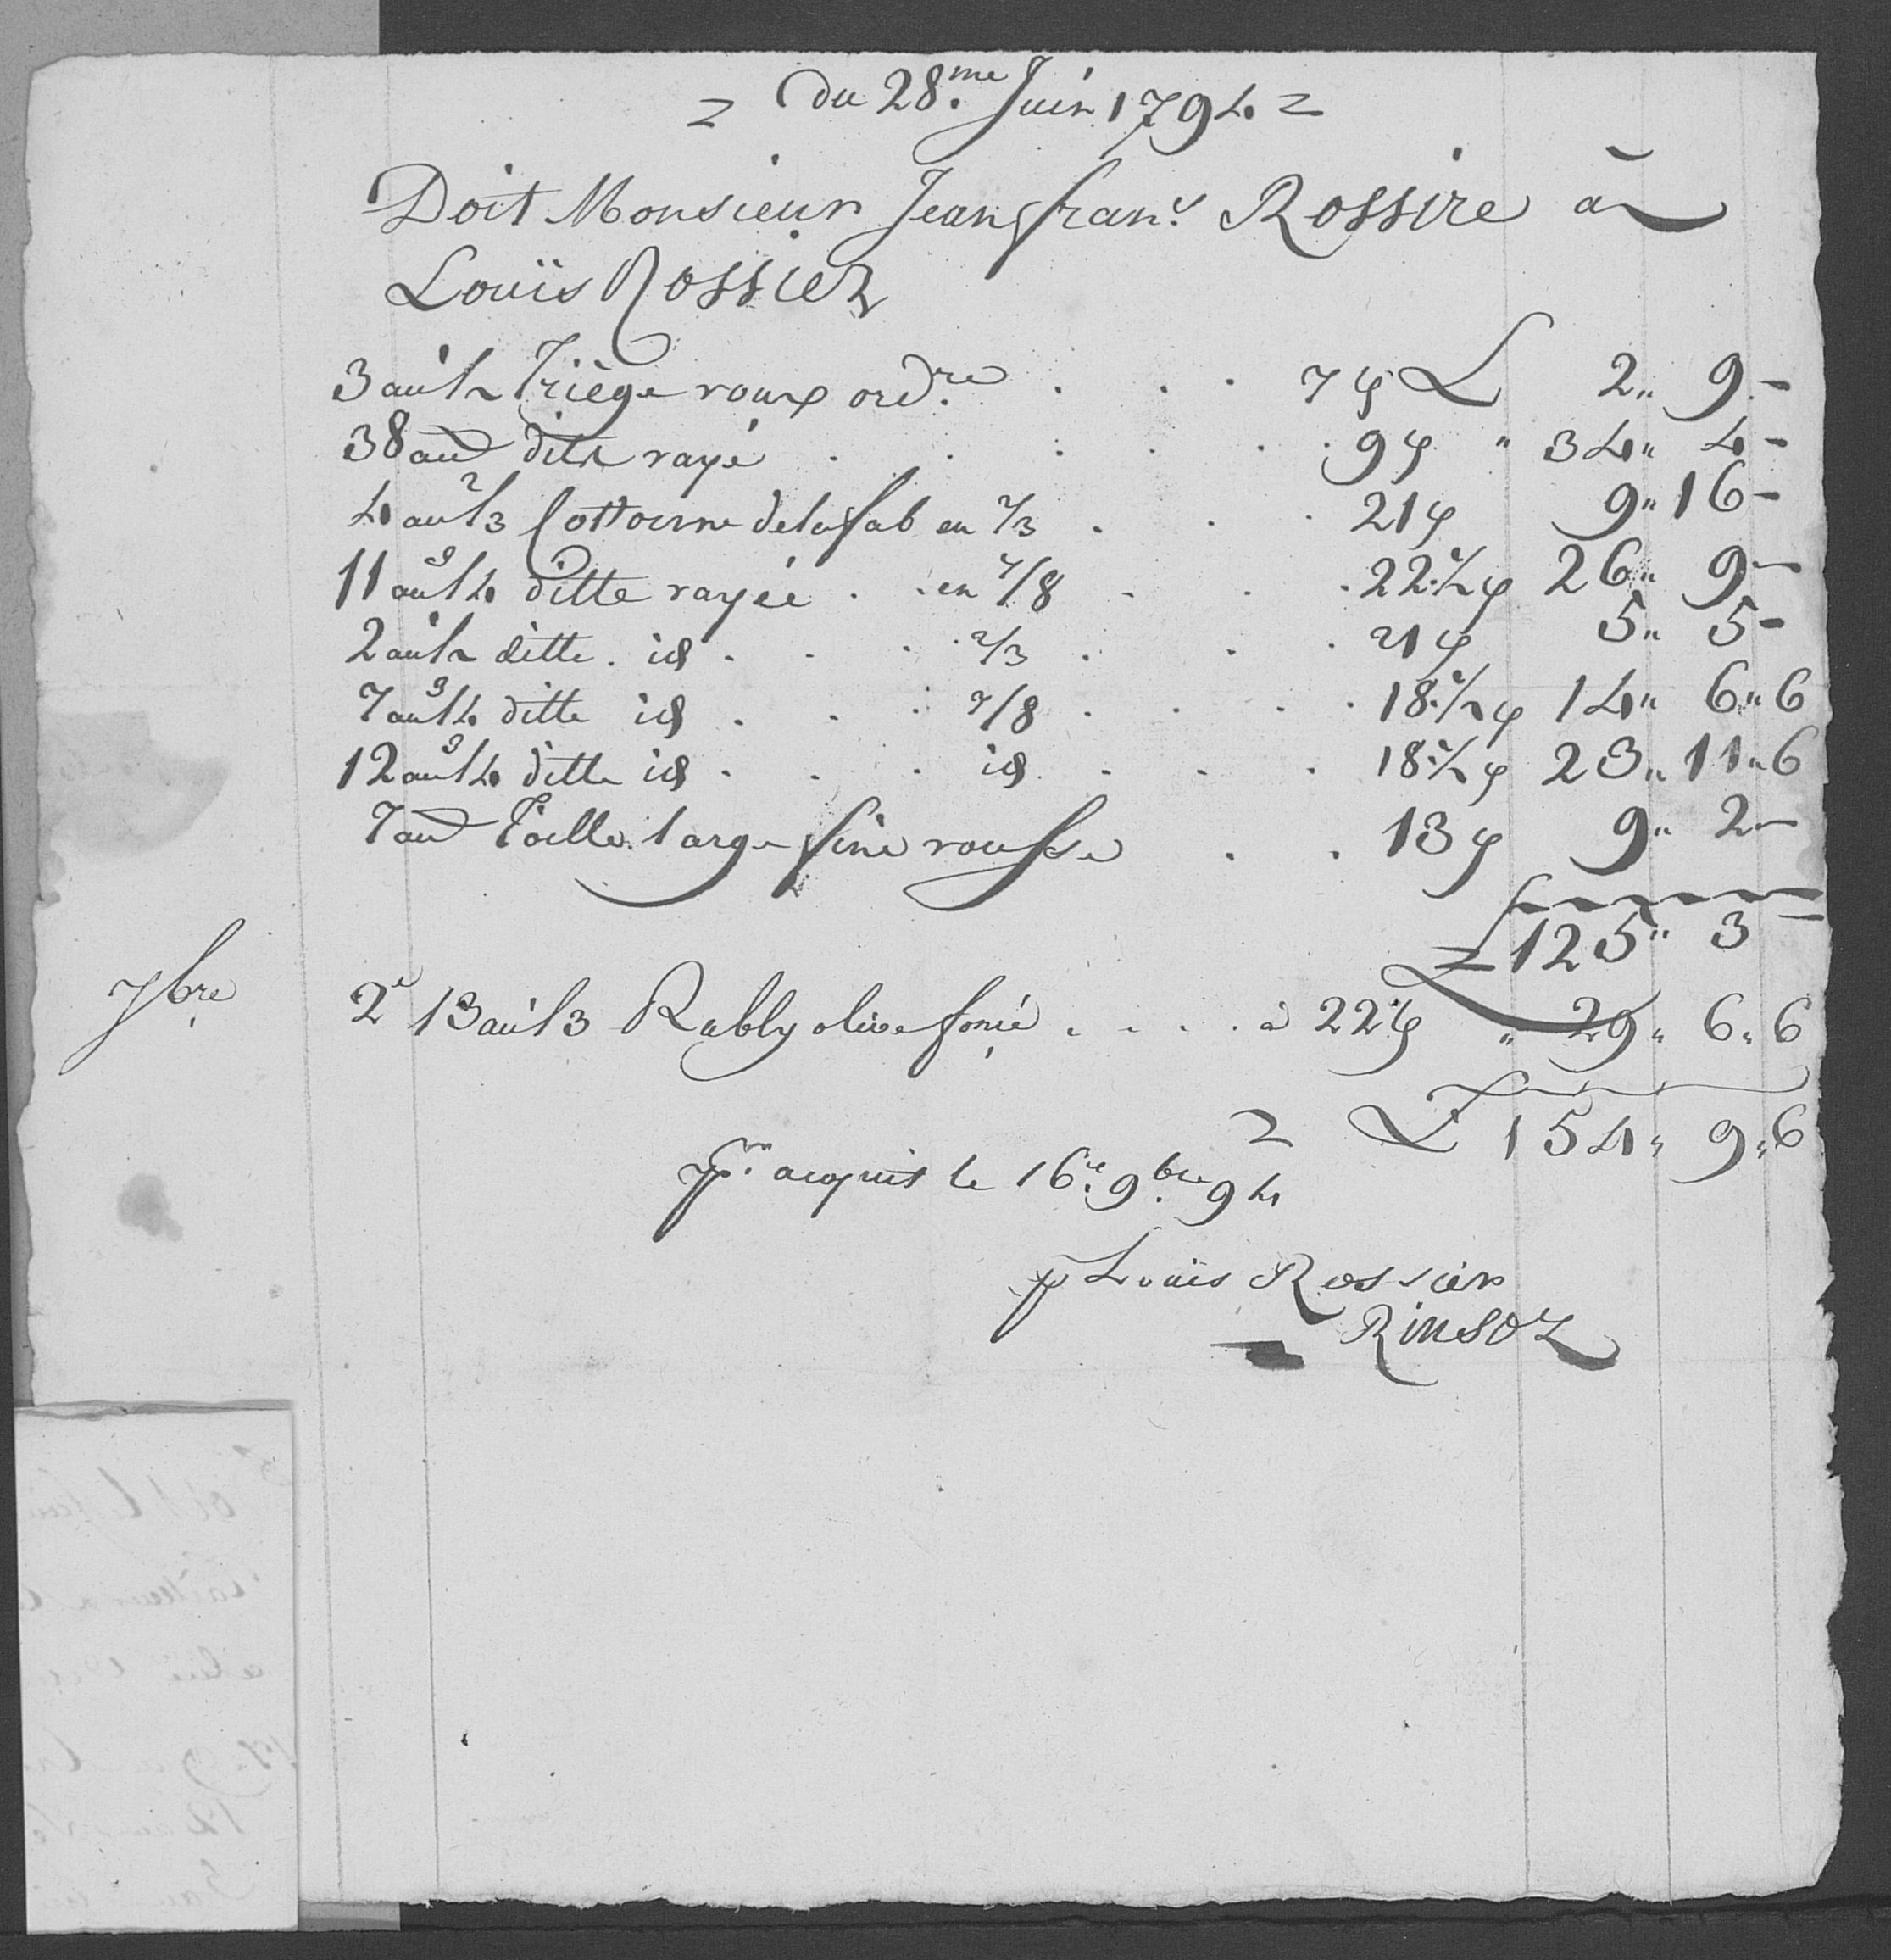 Du 28.me Juin 1794
Doit Monsieur Jean fran.s Rossire à
Louïs Rossier
3 au 1/2 Triège roux ord.re . . . 7 ß L 2 " 9 –
38 au dite rayé . . . . . 9 ß " 34 " 4 –
4 au 2/3 Cottonne de la fab en 2/3 . . . 21 ß 9 " 16 –
11 au 3/4 ditte rayée . . en 7/8 . . . 22 1/2 ß 26 " 9 –
2 au 1/2 ditte . id . . . 2/3 . . . 21 ß 5 " 5 –
7 au 3/4 ditte id . . . 7/8 . . . . 18 1/2 ß 14 " 6 " 6
12 au 3/4 ditte id . . . id . . . 18 1/2 ß 23 " 11 " 6
7 au Toille large fine rousse . . 13 ß 9 " 2 –
L 125 " 3 –
7bre 2e 13 au 1/3 Rably olive foncé . . . . à 22 ß " 29 " 6 " 6
L 154 " 9 " 6
pr. acquit le 16e. 9bre 94
p Louïs Rossier
Rinsoz